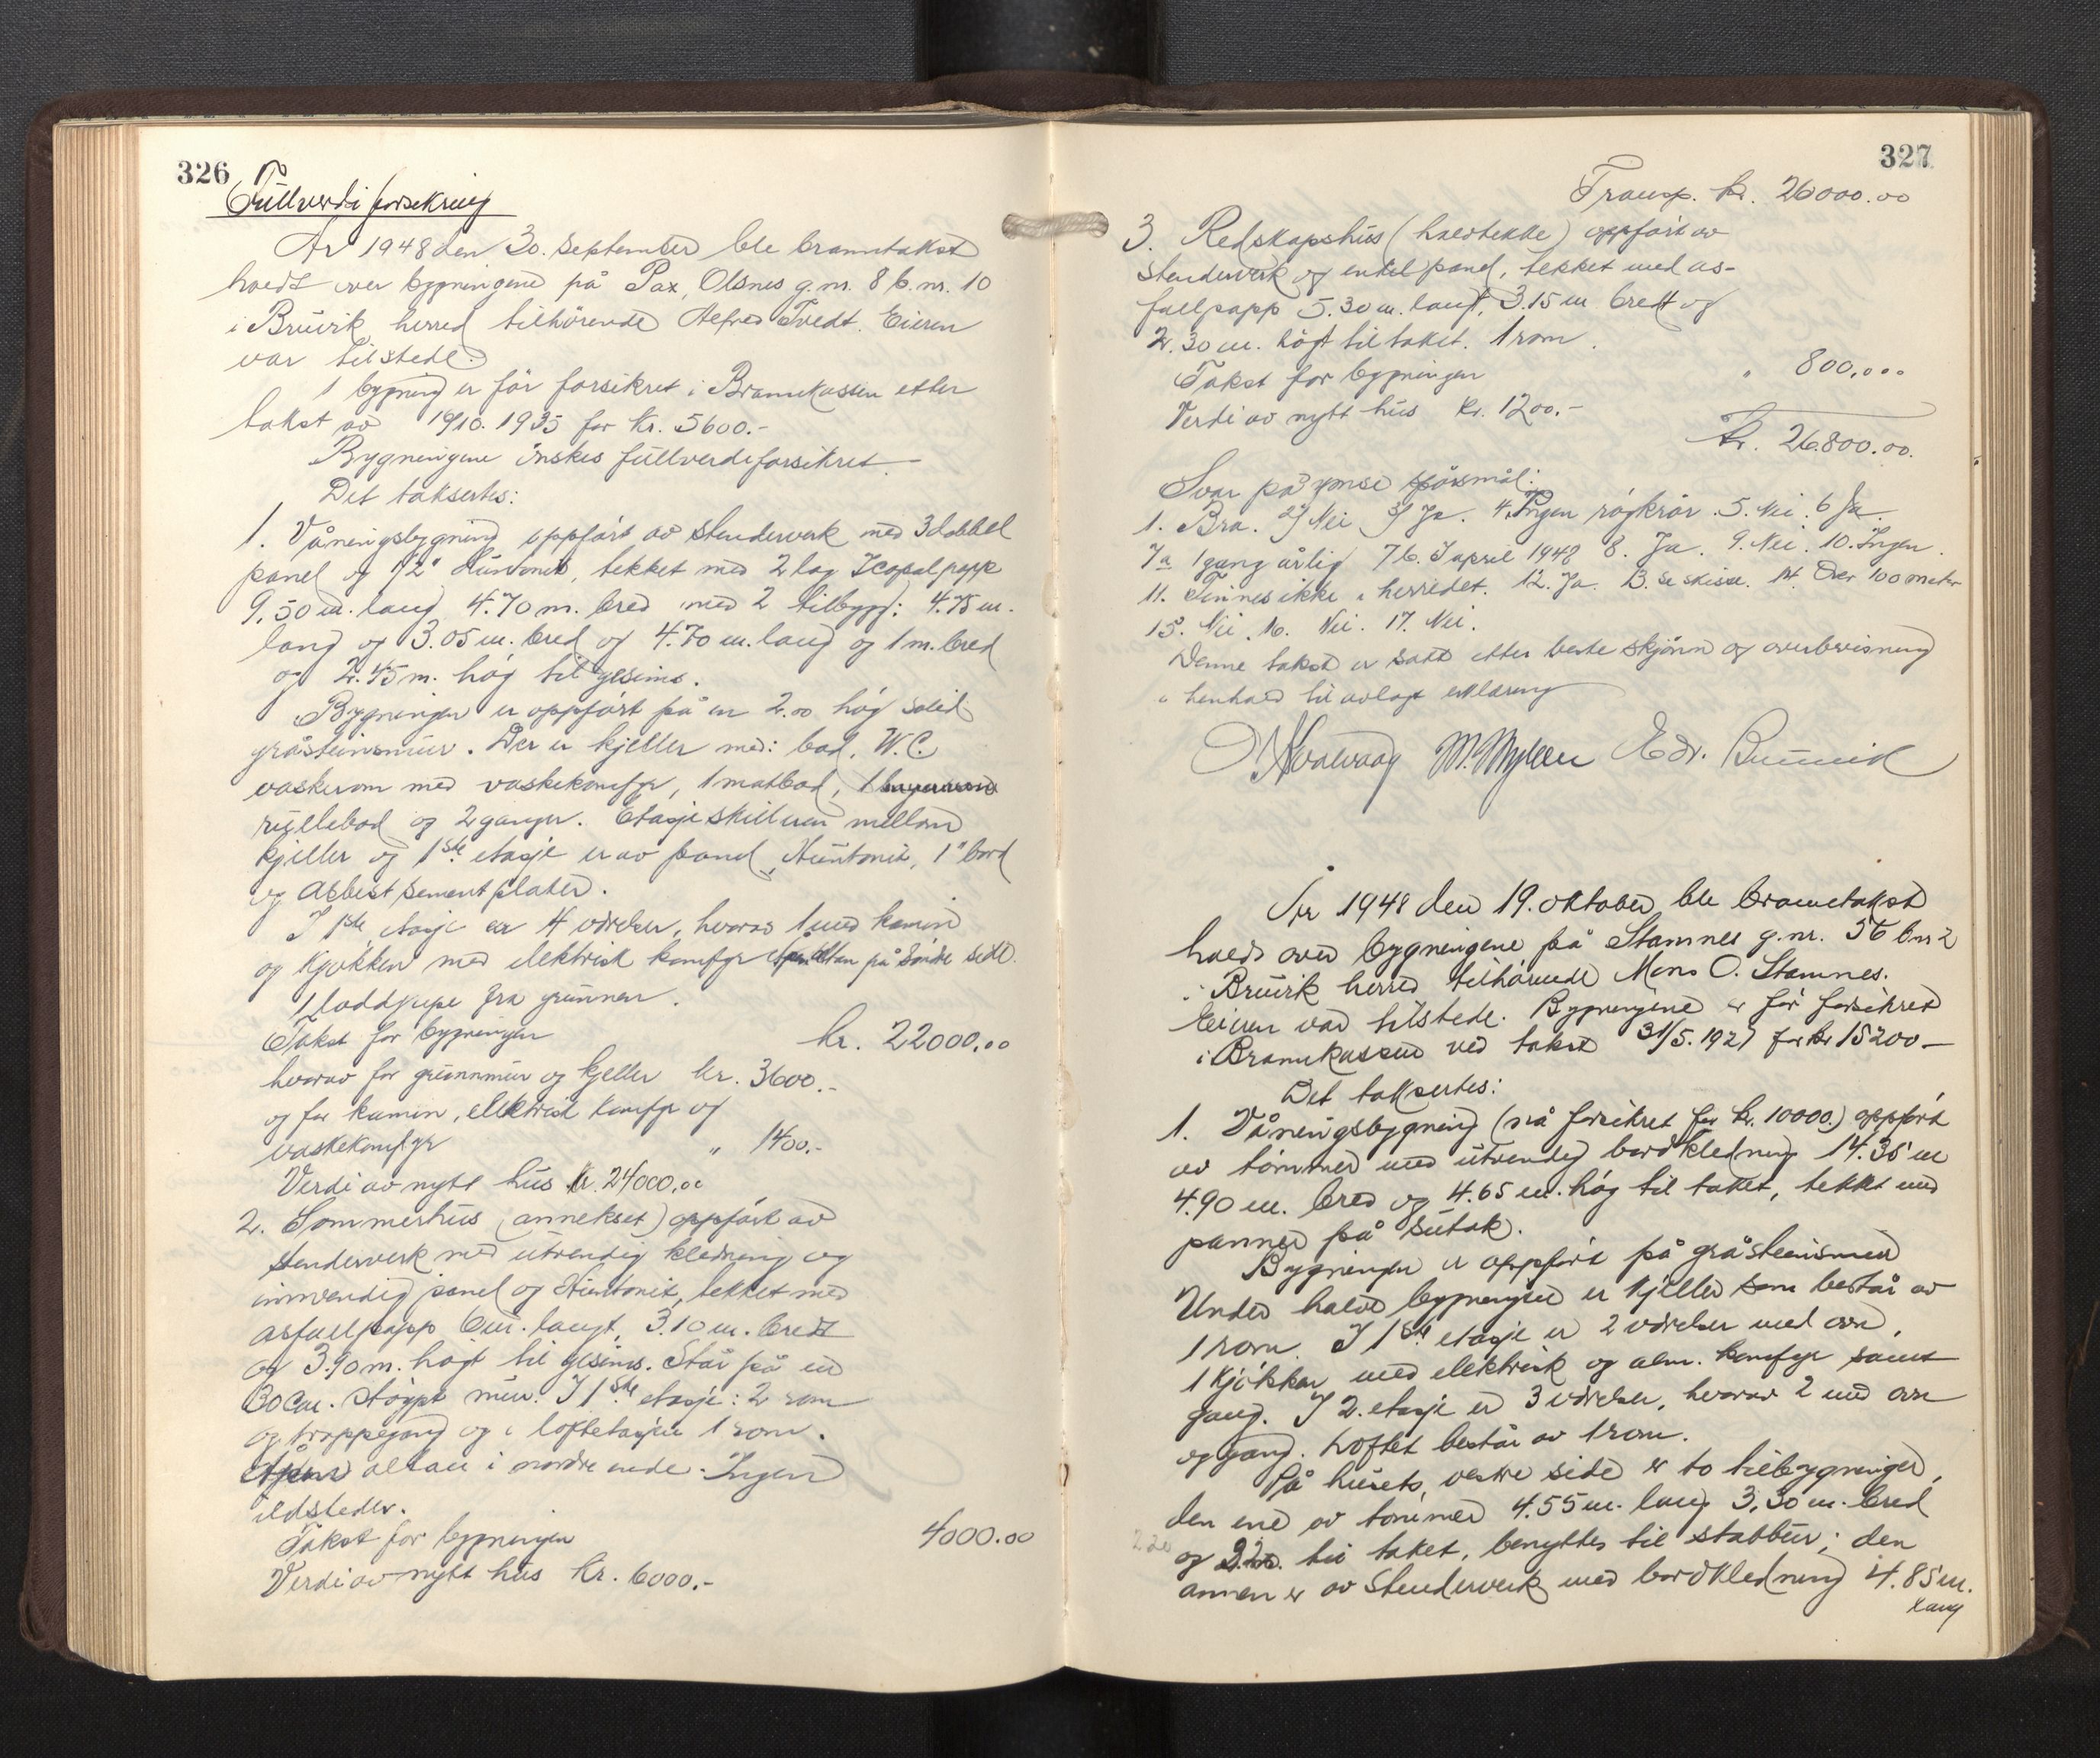 326
Fullverdiforsikring
År 1948 den 30. september ble branntakst
holdt over bygningene på Pax, Olsnes g.nr. 8 b.nr. 10
i Bruvik herred tilhørende Alfred Tvedt. Eieren
var tilstede.
1 bygning er før forsikret i Brannkassen etter
takst av 19/10. 1935 for kr. 5600.-
Bygningene ønskes fullverdiforsikret.
Det taksertes:
1. Våningsbygning oppført av stenderverk med 3 dobbel
panel og 1/2" Huntonit, tekket med 2 lag Icopal papp
9,50 m. lang 4.70 m. bred med 2 tilbygg: 4.75 m.
lang og 3.05 m. bred og 4.70 m. lang og 1 m. bred
og 2.45 m. høg til gesims.
Bygningen er oppført på en 2.00 høg solid
gråsteinsmur. Der er kjeller med: bad, W.C.
vaskerom med vaskekomfyr, 1 matbod, 1
rullebod og 2 ganger. Etasjeskillnen mellom
kjeller og 1ste etasje er av panel, Huntonit, 1" bord
og asbest sementplater.
I 1ste etasje er 4 værelser, hvorav 1 med kamin
og kjøkken med elektrisk komfyr Åpen altan på søndre side.
1 loddpipe fra grunnen.
Takst for bygningen kr. 22000.00
hvorav for grunnmur og kjeller kr. 3600.-
og for kamin, elektrisk komfyr og
vaskekomfyr " 1400.-
Verdi av nytt hus kr. 24000.00
2. Sommerhus (annekset) oppført av
stenderverk med utvendig kledning og
innvendig panel og Huntonit, tekket med
asfaltpapp 6 m. langt, 3.10 m. bredt
og 3.90 m. høgt til gesims. Står på en
30 cm. støypt mur. I 1ste etasje: 2 rom
og trappegang og i loftetasjen 1 rom.
Åpen altan i nordre ende. Ingen
ildsteder.
Takst for bygningen 4000.00
Verdi av nytt hus kr. 6000.-
327
Transp. kr. 26000.00
3. Redskapshus (halvtekke) oppført av
stenderverk og enkel panel, tekket med as-
faltpapp 5.30 m. langt, 3.15 m. bredt og
2.30 m. høgt til taket. 1 rom.
Takst for bygningen " 800.00
Verdi av nytt hus kr. 1200.-
kr. 26.800.00.
Svar på ymse spørsmål:
1. Bra. 2) Nei 3) Ja. 4. Ingen røykrør. 5. Nei. 6 Ja.
7a 1 gang årlig 7b. I april 1948 8. Ja. 9. Nei. 10. Ingen.
11. Finnes ikke i herredet. 12. Ja. 13. Se skisse. 14. Over 100 meter
15. Nei. 16. Nei. 17. Nei.
Denne takst er satt etter beste skjønn og overbevisning
i henhold til avlagt erklæring
M. Myhren Edv. Bruvik
År 1948 den 19. oktober ble branntakst
holdt over bygningene på Stamnes g.nr. 56 b.nr 2
i Bruvik herred tilhørende Mons O. Stamnes.
Eieren var tilstede. Bygningene er før forsikret
i Brannkassen ved takst 31/5. 1927 for kr 15200.-
Det taksertes:
1. Våningsbygning (nå forsikret for kr. 10000.) oppført
av tømmer med utvendig bordkledning 14.35 m
4.90 m. bred og 4.65 m. høg til taket, tekket med
panner på sutak.
Bygningen er oppført på gråsteinsmur
Under halve bygningen er kjeller som består av
1 rom. I 1ste etasje er 2 værelser med ovn,
1 kjøkken med elektrisk og alm. komfyr samt
gang. I 2. etasje er 3 værelser, hvorav 2 med ovn
og gang. Loftet består av 1 rom.
På husets vestre side er to tilbygninger,
den ene av tømmer 4.55 m. lang 3,30 m. bred
220
og 2.20. til taket, benyttes til stabbur; den
annen er av stenderverk med bordkledning 4.85 m.
lang